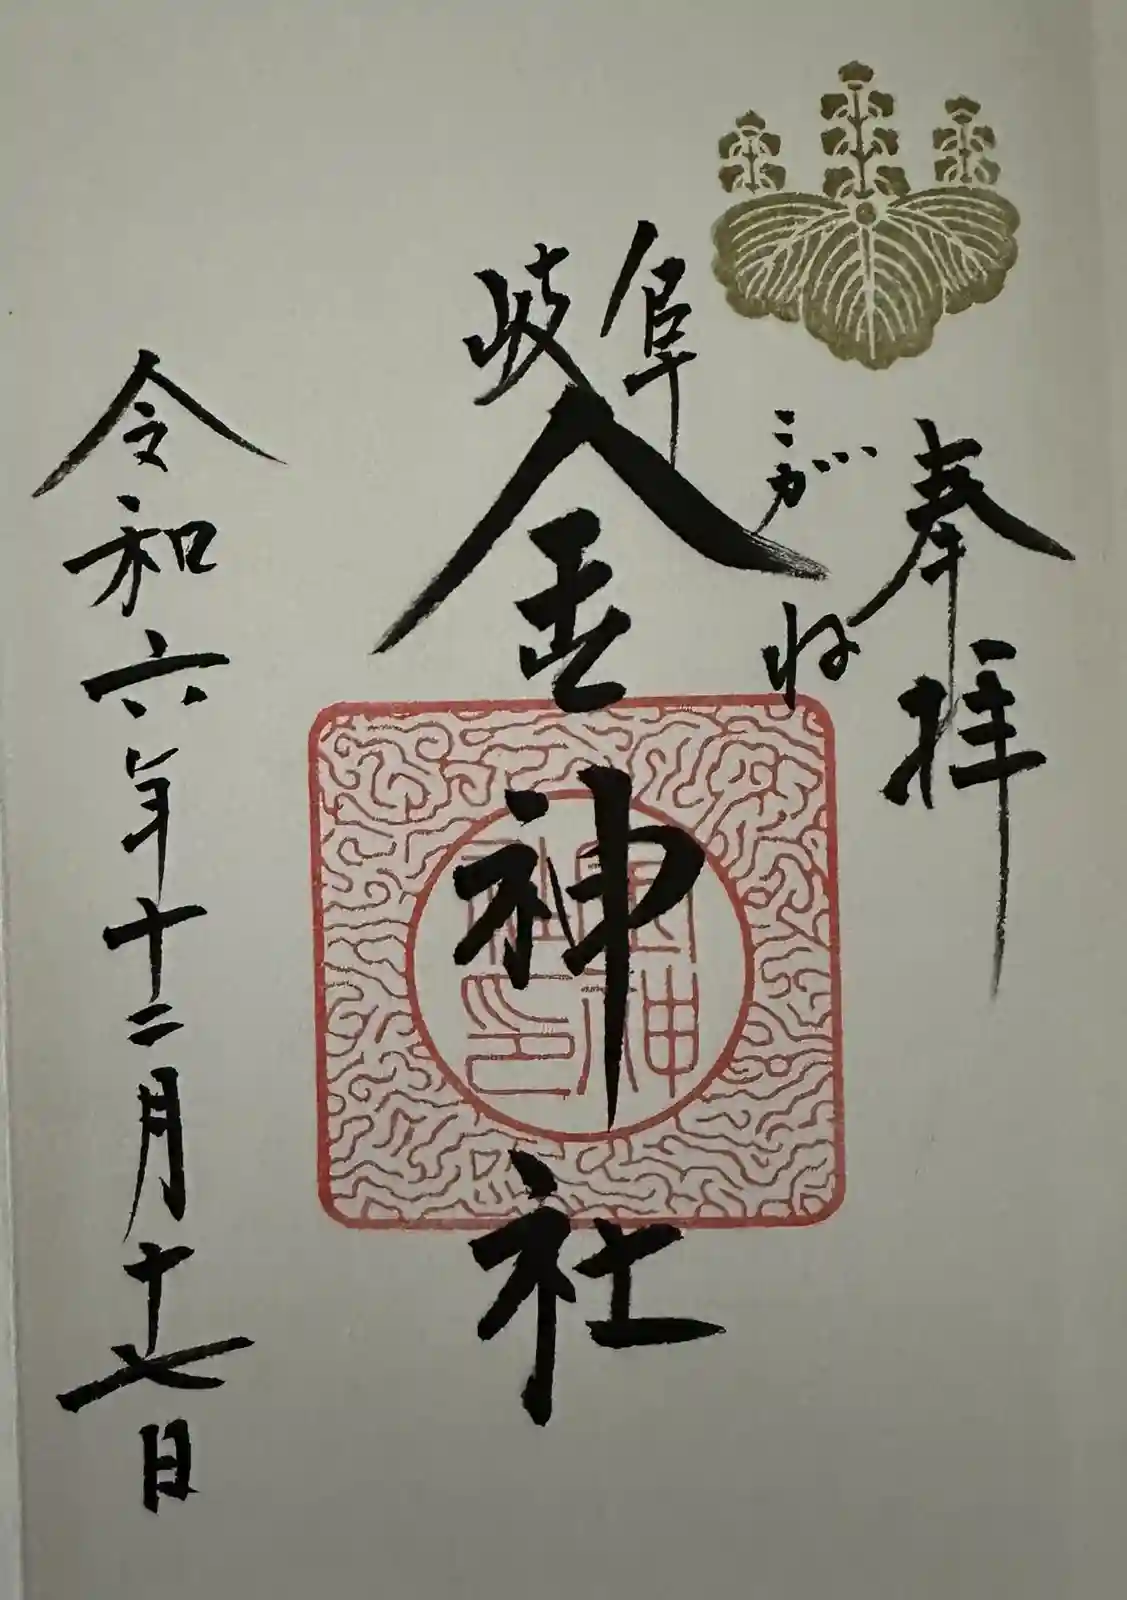 奉拝
こがね
岐阜
金神社
金神社印
令和六年十二月十七日